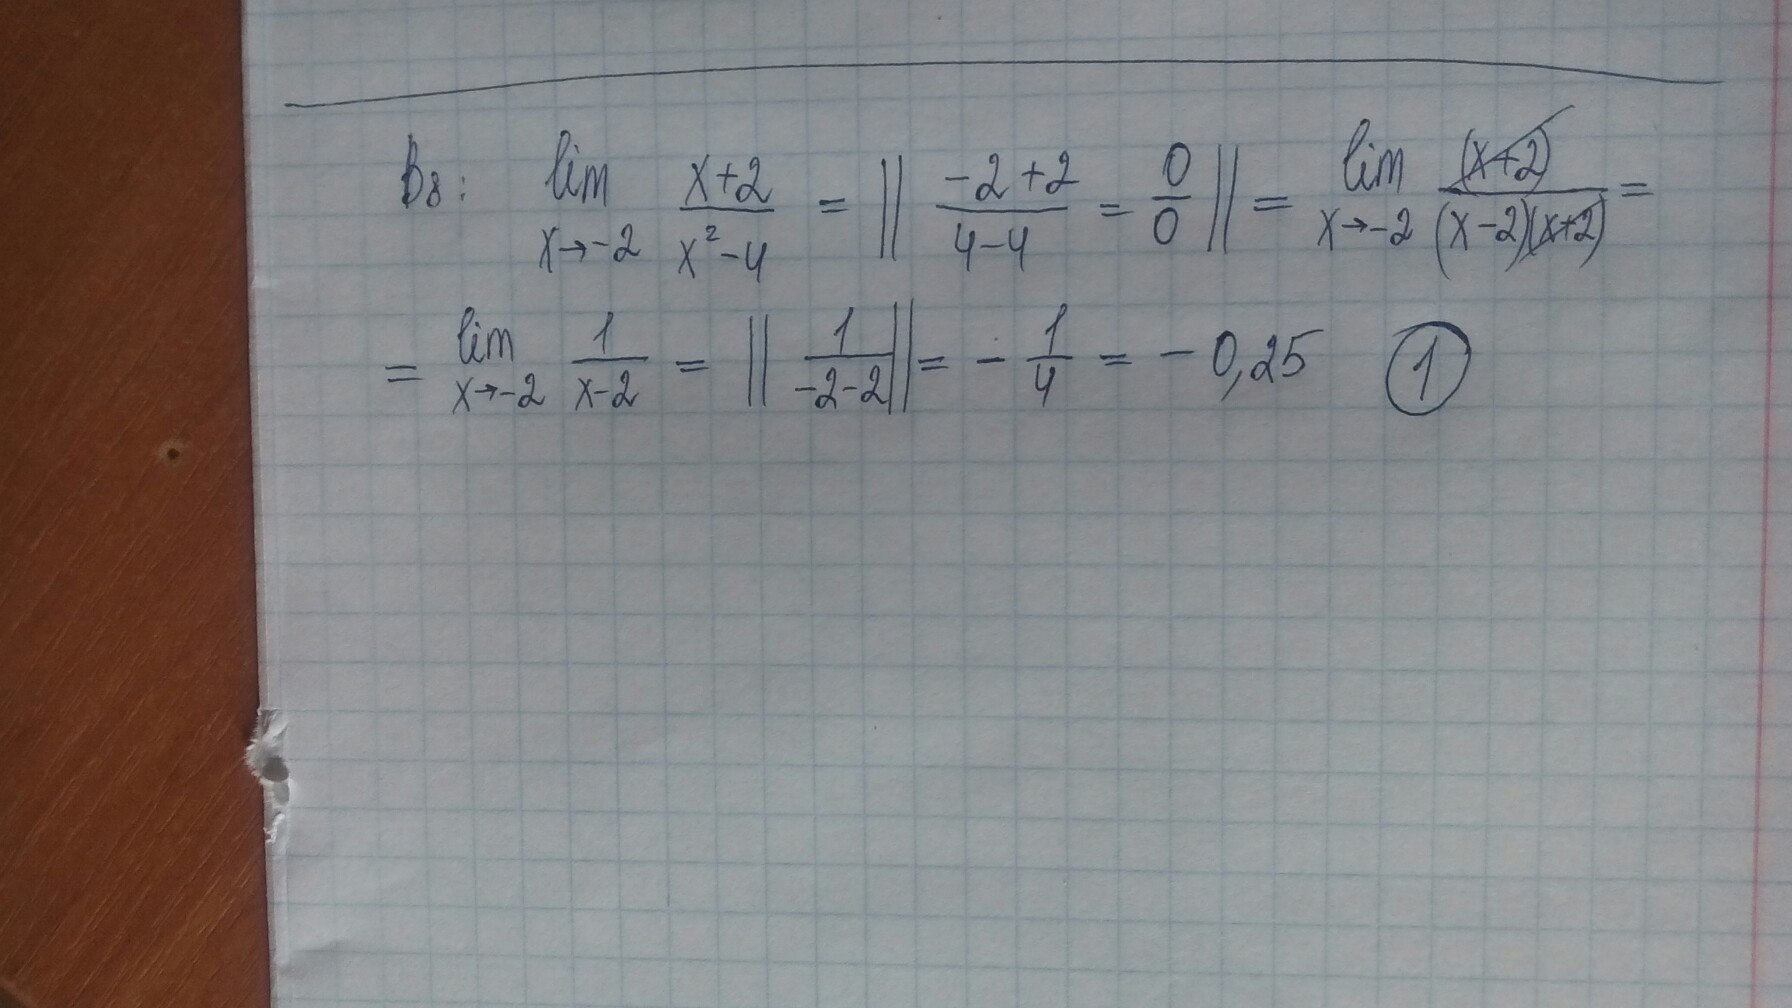 B8: lim x→-2 x+2/x²-4 = || -2+2/4-4 = 0/0 || = lim x→-2 (x+2)/(x-2)(x+2) =
= lim x→-2 1/x-2 = || 1/-2-2 || = - 1/4 = - 0,25 1